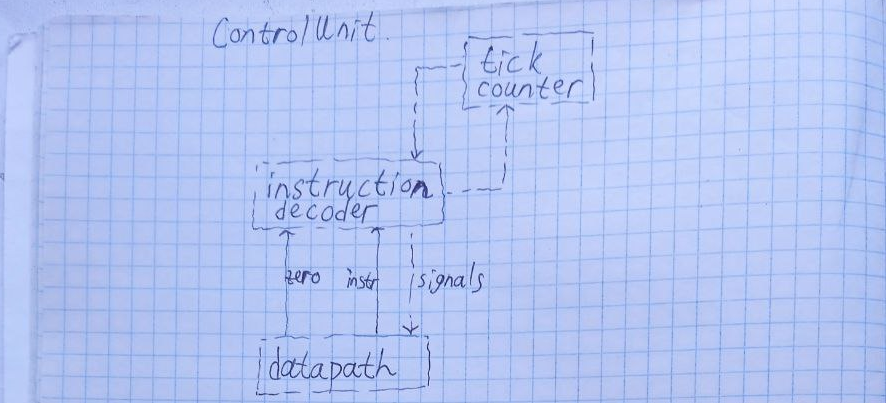 ControlUnit.
tick
counter
instruction
decoder
zero instr signals
datapath